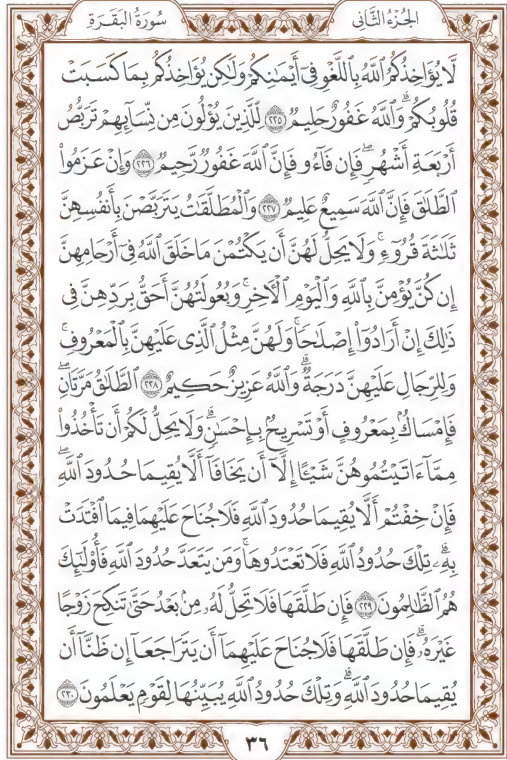 الجُزْءُ الثَّانِى
سُورَةُ البَقَرَةِ
لَّا يُؤَاخِذُكُمُ ٱللَّهُ بِٱللَّغْوِ فِىٓ أَيْمَـٰنِكُمْ وَلَـٰكِن يُؤَاخِذُكُم بِمَا كَسَبَتْ
قُلُوبُكُمْ ۗ وَٱللَّهُ غَفُورٌ حَلِيمٌ ٢٢٥ لِّلَّذِينَ يُؤْلُونَ مِن نِّسَآئِهِمْ تَرَبُّصُ
أَرْبَعَةِ أَشْهُرٍ ۖ فَإِن فَآءُو فَإِنَّ ٱللَّهَ غَفُورٌ رَّحِيمٌ ٢٢٦ وَإِنْ عَزَمُوا۟
ٱلطَّلَـٰقَ فَإِنَّ ٱللَّهَ سَمِيعٌ عَلِيمٌ ٢٢٧ وَٱلْمُطَلَّقَـٰتُ يَتَرَبَّصْنَ بِأَنفُسِهِنَّ
ثَلَـٰثَةَ قُرُوٓءٍ ۚ وَلَا يَحِلُّ لَهُنَّ أَن يَكْتُمْنَ مَا خَلَقَ ٱللَّهُ فِىٓ أَرْحَامِهِنَّ
إِن كُنَّ يُؤْمِنَّ بِٱللَّهِ وَٱلْيَوْمِ ٱلْـَٔاخِرِ ۚ وَبُعُولَتُهُنَّ أَحَقُّ بِرَدِّهِنَّ فِى
ذَٰلِكَ إِنْ أَرَادُوٓا۟ إِصْلَـٰحًا ۚ وَلَهُنَّ مِثْلُ ٱلَّذِى عَلَيْهِنَّ بِٱلْمَعْرُوفِ ۚ
وَلِلرِّجَالِ عَلَيْهِنَّ دَرَجَةٌ ۗ وَٱللَّهُ عَزِيزٌ حَكِيمٌ ٢٢٨ ٱلطَّلَـٰقُ مَرَّتَانِ ۖ
فَإِمْسَاكٌۢ بِمَعْرُوفٍ أَوْ تَسْرِيحٌۢ بِإِحْسَـٰنٍ ۗ وَلَا يَحِلُّ لَكُمْ أَن تَأْخُذُوا۟
مِمَّآ ءَاتَيْتُمُوهُنَّ شَيْـًٔا إِلَّآ أَن يَخَافَآ أَلَّا يُقِيمَا حُدُودَ ٱللَّهِ ۖ
فَإِنْ خِفْتُمْ أَلَّا يُقِيمَا حُدُودَ ٱللَّهِ فَلَا جُنَاحَ عَلَيْهِمَا فِيمَا ٱفْتَدَتْ
بِهِۦ ۗ تِلْكَ حُدُودُ ٱللَّهِ فَلَا تَعْتَدُوهَا ۚ وَمَن يَتَعَدَّ حُدُودَ ٱللَّهِ فَأُو۟لَـٰٓئِكَ
هُمُ ٱلظَّـٰلِمُونَ ٢٢٩ فَإِن طَلَّقَهَا فَلَا تَحِلُّ لَهُۥ مِنۢ بَعْدُ حَتَّىٰ تَنكِحَ زَوْجًا
غَيْرَهُۥ ۗ فَإِن طَلَّقَهَا فَلَا جُنَاحَ عَلَيْهِمَآ أَن يَتَرَاجَعَآ إِن ظَنَّآ أَن
يُقِيمَا حُدُودَ ٱللَّهِ ۗ وَتِلْكَ حُدُودُ ٱللَّهِ يُبَيِّنُهَا لِقَوْمٍ يَعْلَمُونَ ٢٣٠
٣٦